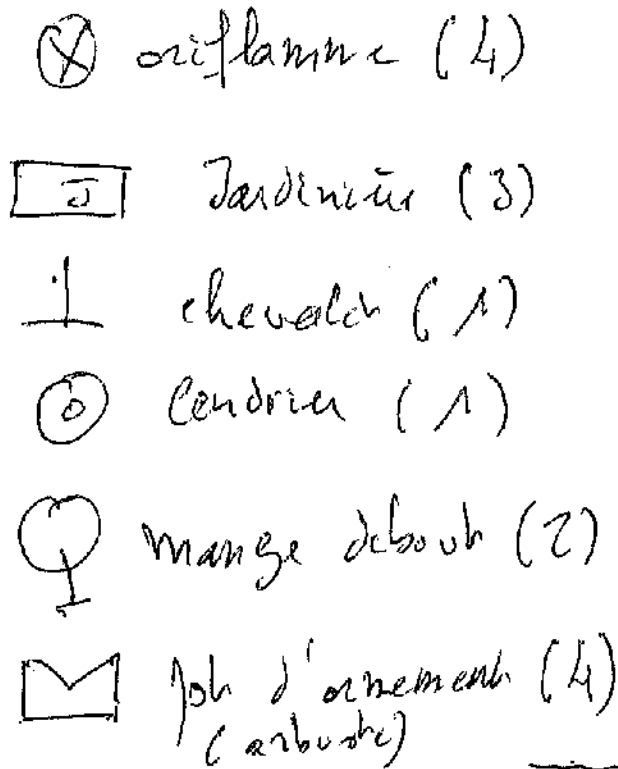 oriflamme (4)
J Jardinière (3)
chevalet (1)
Cendrier (1)
mange debout (2)
pot d'ornement (4)
(arbuste)